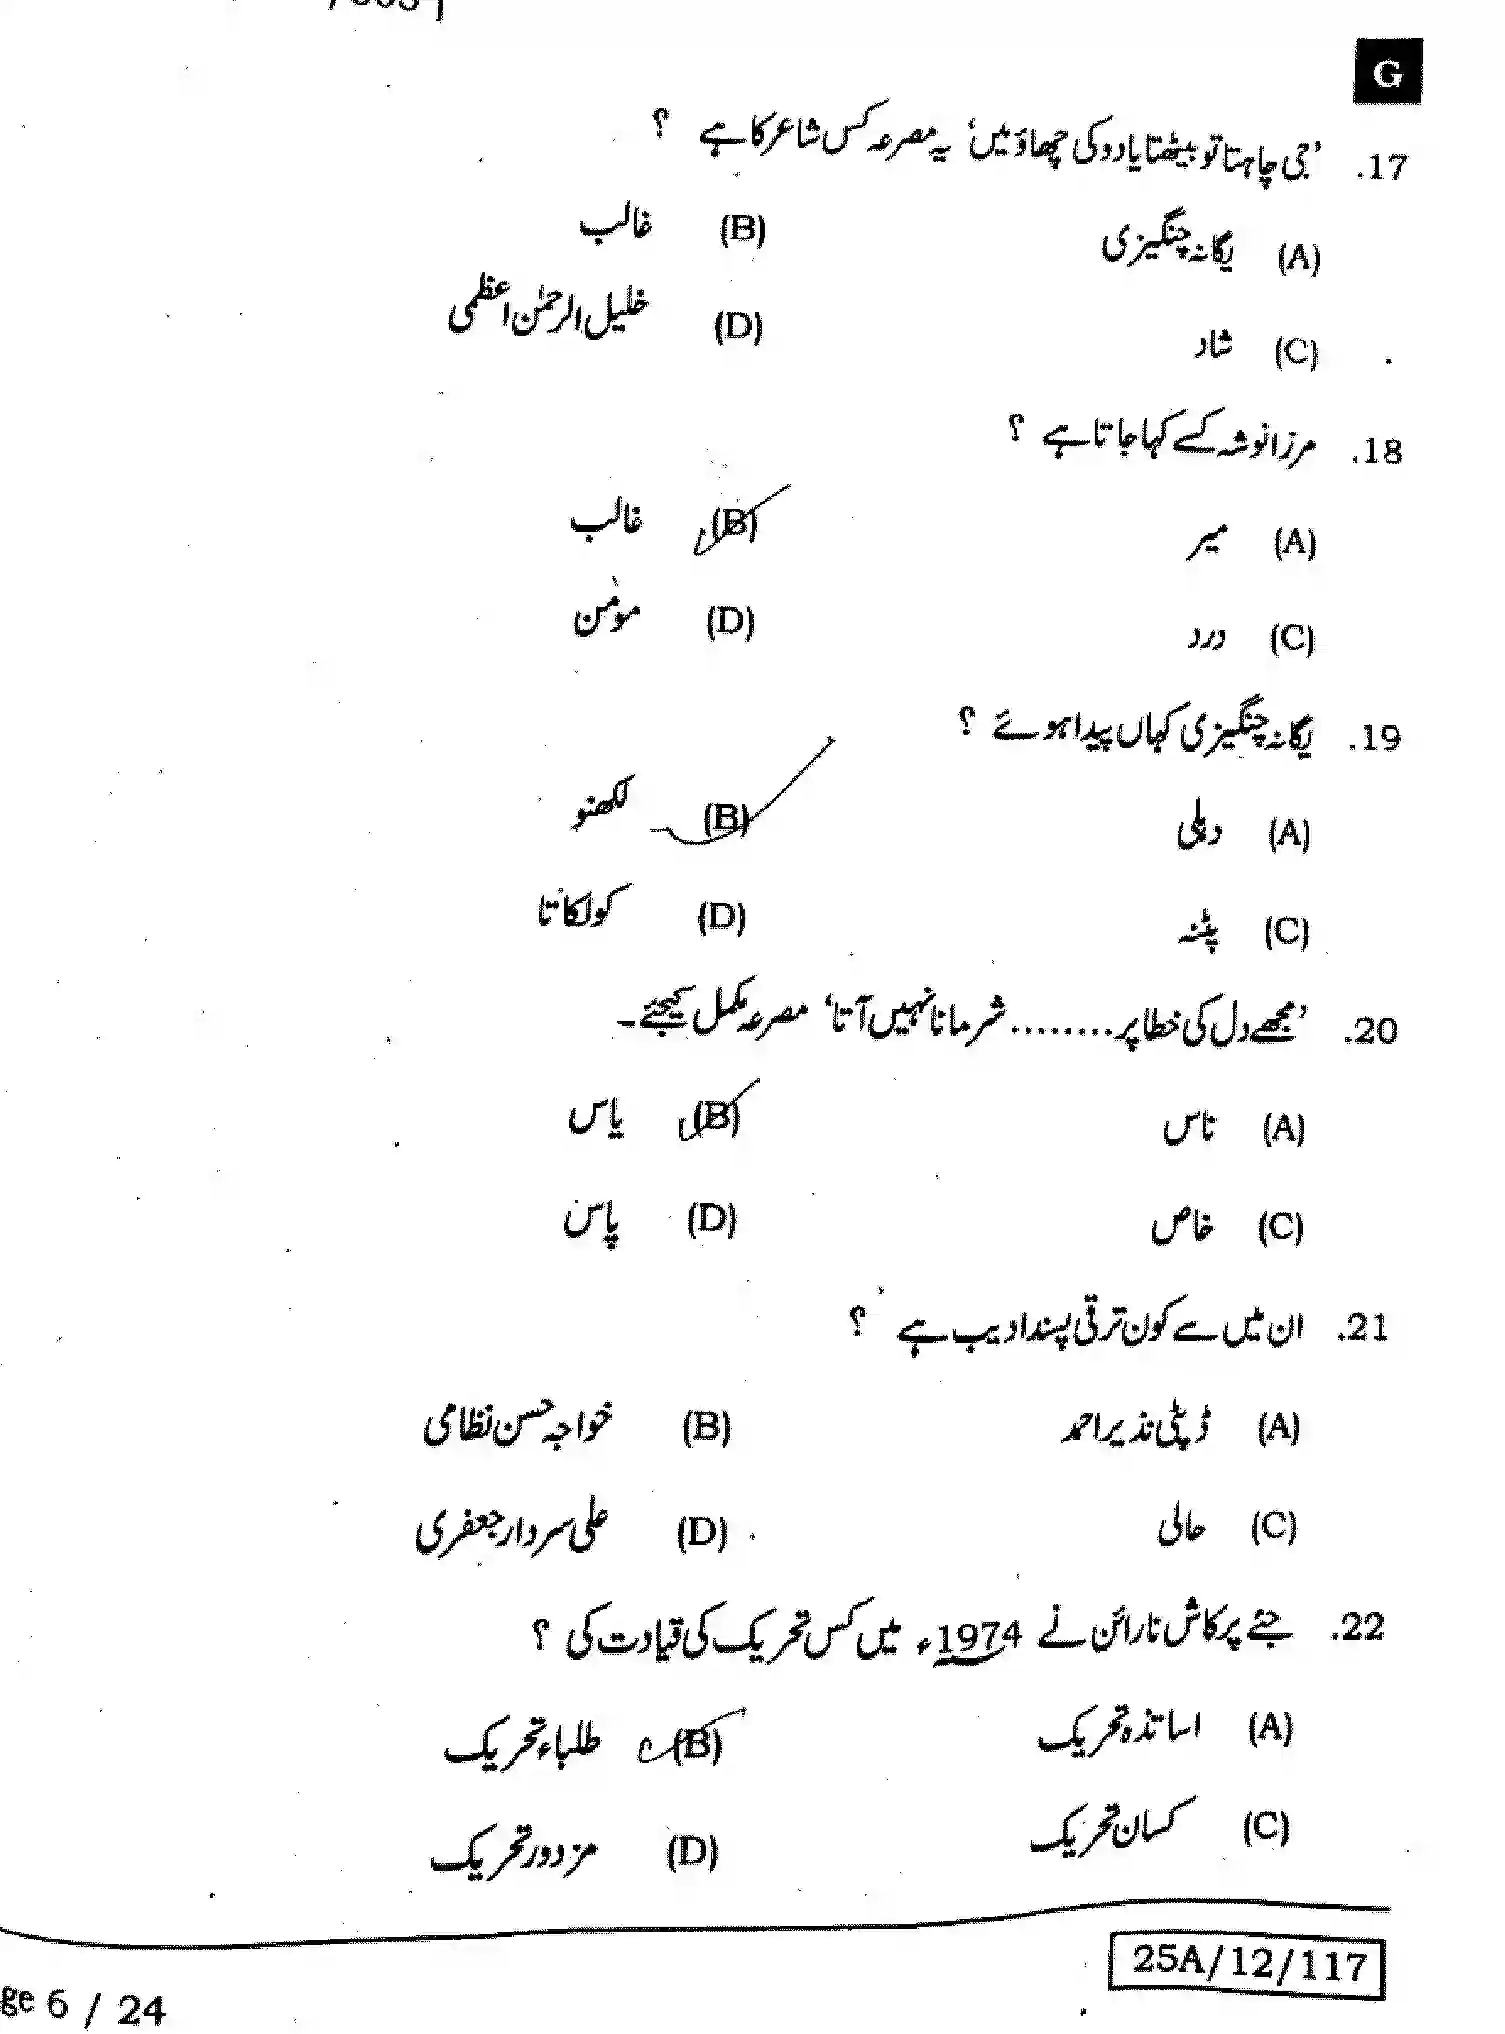 G
17. 'جی چاہتا تو بیٹھتا یادو کی چھاؤ میں' یہ مصرعہ کس شاعر کا ہے ؟
(A) یگانہ چنگیزی (B) غالب
(C) شاد (D) خلیل الرحمٰن اعظمی
18. مرزا نوشہ کسے کہا جاتا ہے ؟
(A) میر (B) غالب
(C) درد (D) مومن
19. یگانہ چنگیزی کہاں پیدا ہوئے ؟
(A) دہلی (B) لکھنو
(C) پٹنہ (D) کولکاتا
20. 'مجھے دل کی خطا پر ........ شرمانا نہیں آتا' مصرعہ مکمل کیجئے ۔
(A) تاس (B) یاس
(C) خاص (D) پاس
21. ان میں سے کون ترقی پسند ادیب ہے ؟
(A) ڈپٹی نذیر احمد (B) خواجہ حسن نظامی
(C) حالی (D) علی سردار جعفری
22. جئے پرکاش نارائن نے 1974ء میں کس تحریک کی قیادت کی ؟
(A) اساتذہ تحریک (B) طلباء تحریک
(C) کسان تحریک (D) مزدور تحریک
25A/12/117
ge 6 / 24